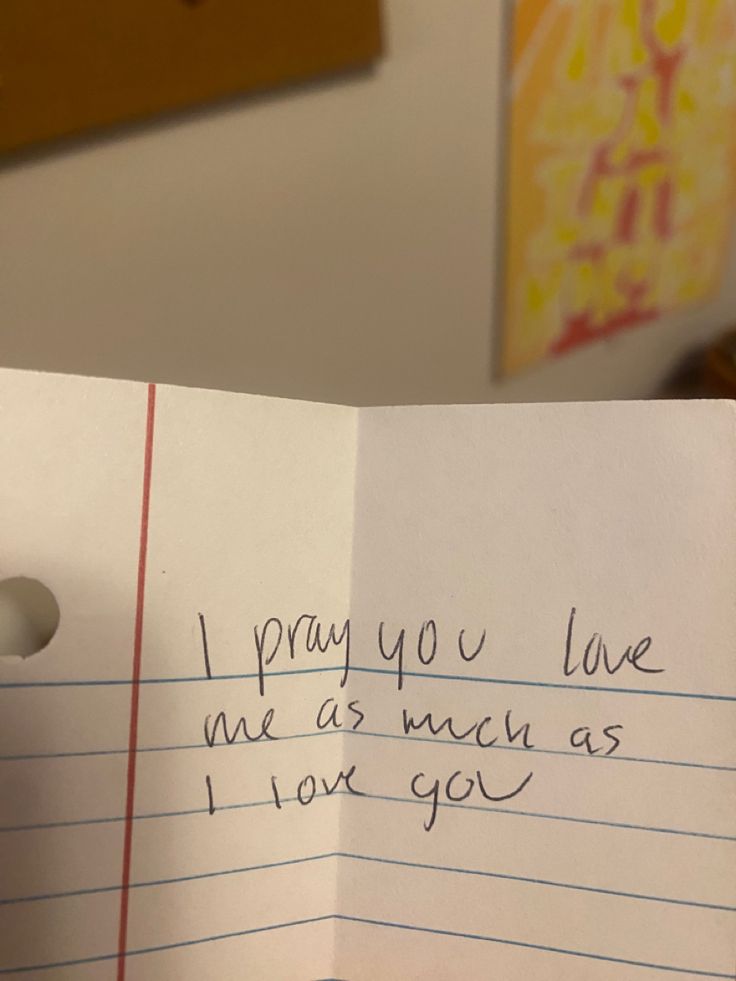 I pray you love
me as much as
I love you